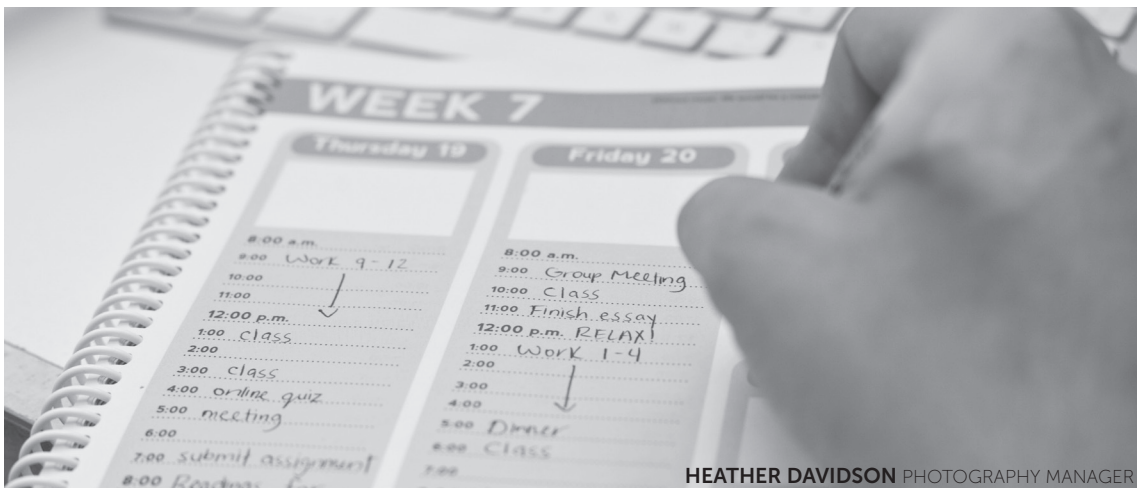 WEEK 7
Thursday 19
8:00 a.m.
9:00 Work 9-12
10:00
11:00
12:00 p.m.
1:00 class
2:00
3:00 class
4:00 online quiz
5:00 meeting
6:00
7:00 submit assignment
8:00 Readings
Friday 20
8:00 a.m.
9:00 Group Meeting
10:00 Class
11:00 Finish essay
12:00 p.m. RELAX!
1:00 Work 1-4
2:00
3:00
4:00
5:00 Dinner
6:00 Class
7:00
HEATHER DAVIDSON PHOTOGRAPHY MANAGER